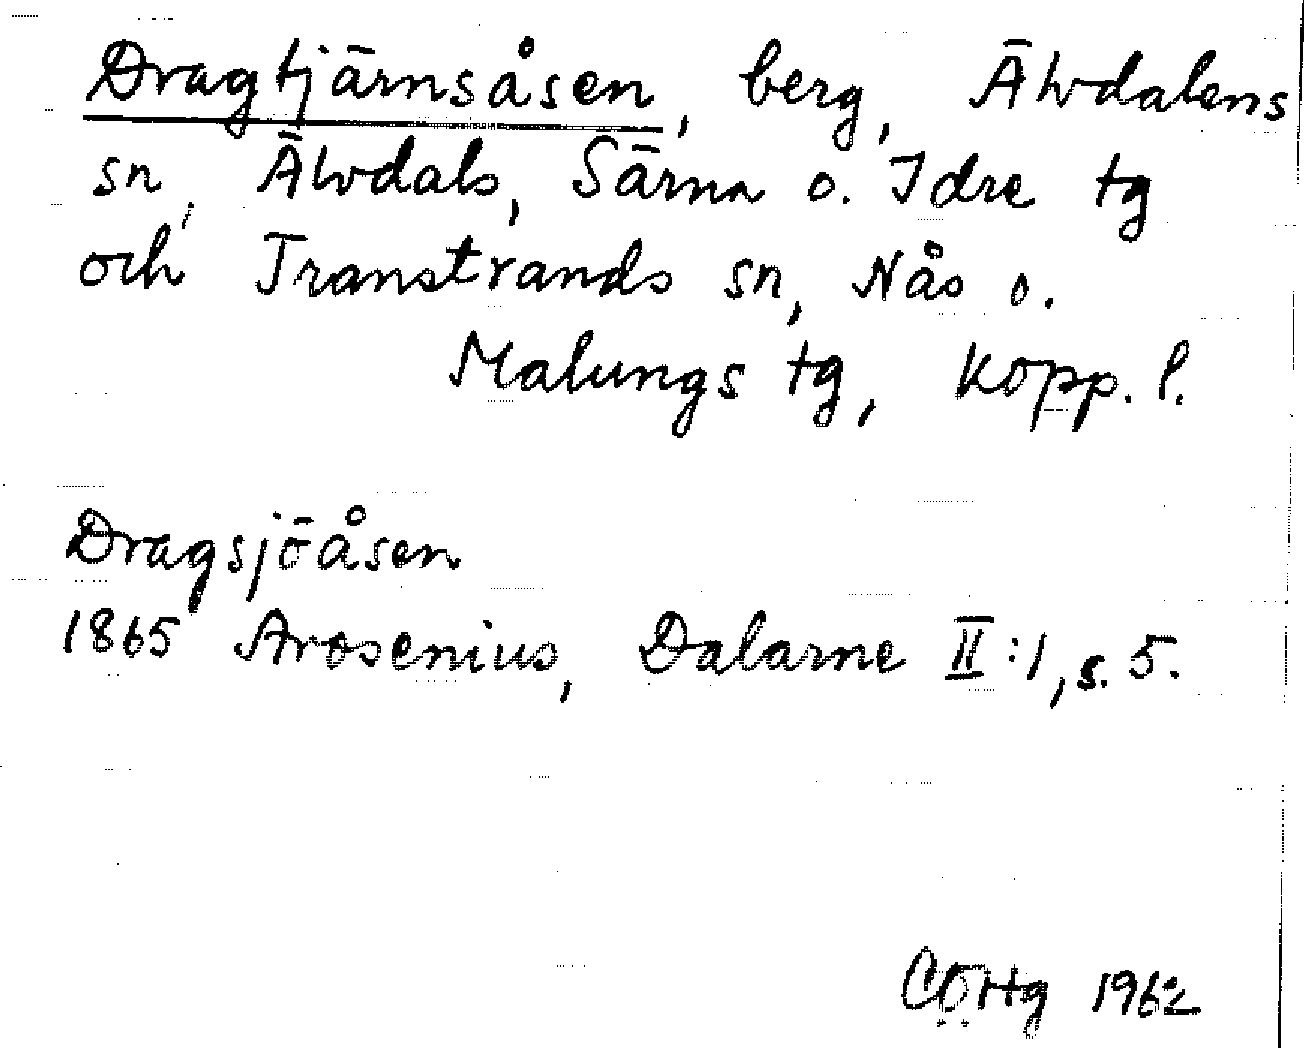 Dragtjärnsåsen, berg, Älvdalens
sn, Älvdals, Särna o. Idre tg
och Transtrands sn, Nås o.
Malungs tg, Kopp. l.
Dragsjöåsen
1865 Arosenius, Dalarne II:1, s. 5.
CÖHg 1962